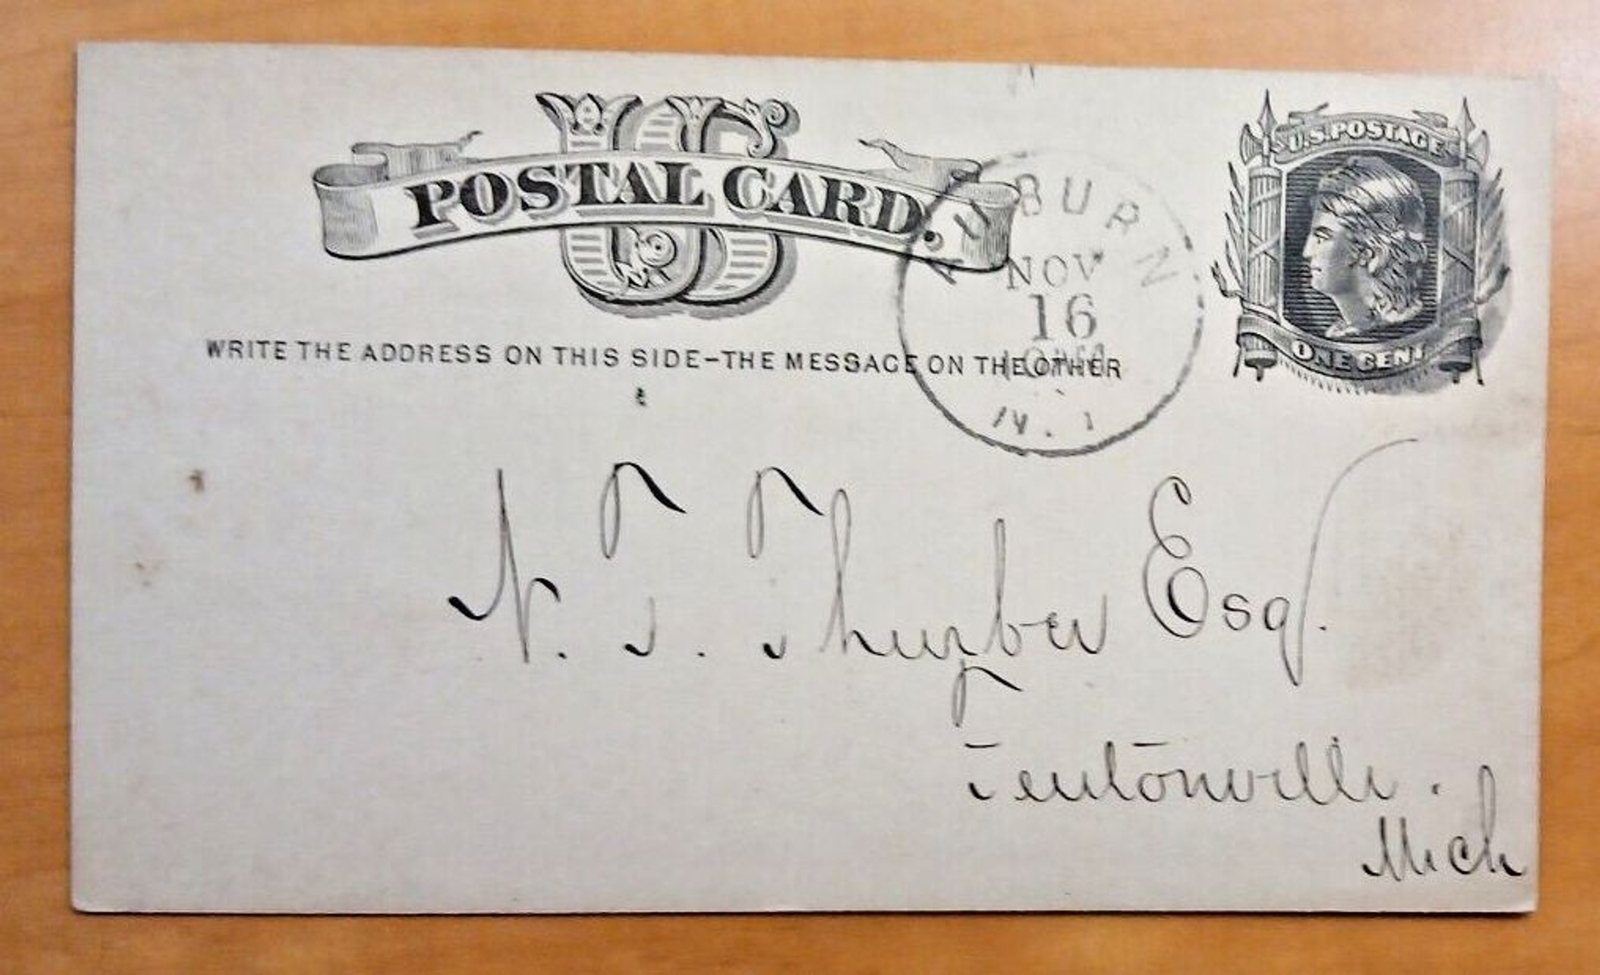 US
POSTAL CARD.
U.S. POSTAGE
ONE CENT
AUBURN
NOV
16
N.Y
WRITE THE ADDRESS ON THIS SIDE–THE MESSAGE ON THE OTHER
N. T. Thurber Esq.
Fentonville.
Mich